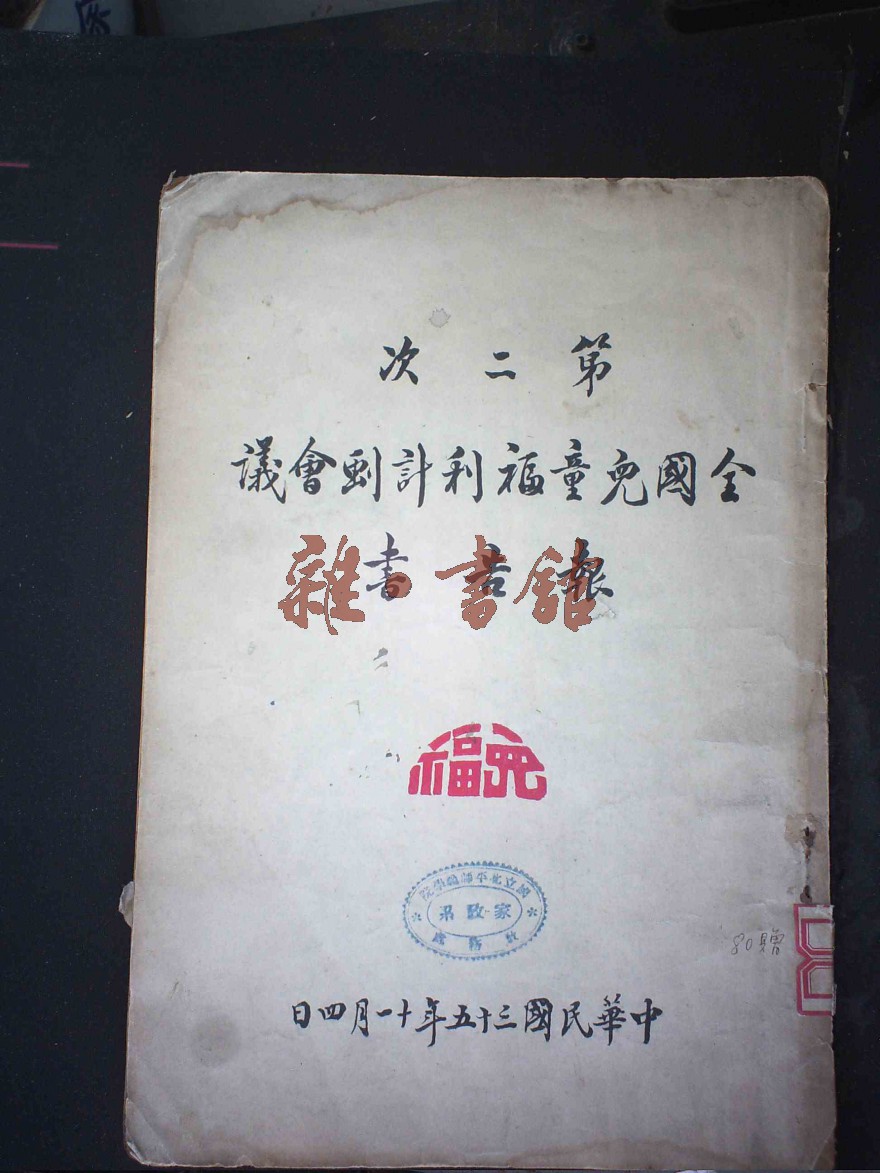 第二次
全國兒童福利計劃會議
報告書
雜·書館
兒福
國立北平師範學院
家政系
教務處
80贈
中華民國三十五年十一月四日